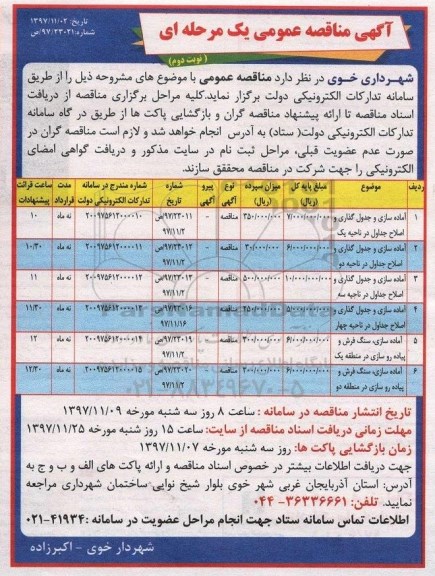 تاریخ: ۱۳۹۷/۱۱/۰۲
شماره: ۹۷/۲۳۰۲۱/ص
آگهی مناقصه عمومی یک مرحله ای
( نوبت دوم )
شهرداری خوی در نظر دارد مناقصه عمومی با موضوع های مشروحه ذیل را از طریق
سامانه تدارکات الکترونیکی دولت برگزار نماید.کلیه مراحل برگزاری مناقصه از دریافت
اسناد مناقصه تا ارائه پیشنهاد مناقصه گران و بازگشایی پاکت ها از طریق در گاه سامانه
تدارکات الکترونیکی دولت( ستاد) به آدرس انجام خواهد شد و لازم است مناقصه گران در
صورت عدم عضویت قبلی، مراحل ثبت نام در سایت مذکور و دریافت گواهی امضای
الکترونیکی را جهت شرکت در مناقصه محققق سازند.
ردیف موضوع مبلغ پایه کل (ریال) میزان سپرده (ریال) نوع آگهی پیرو آگهی شماره تاریخ شماره مندرج در سامانه تدارکات الکترونیکی دولت مدت قرارداد ساعت قرائت پیشنهادات
۱ آماده سازی و جدول گذاری و اصلاح جداول در ناحیه یک ۷/۰۰۰/۰۰۰/۰۰۰ ۳۵۰/۰۰۰/۰۰۰ مناقصه - ۹۷/۲۳۰۱۱/ص ۹۷/۱۱/۲ ۲۰۰۹۷۵۶۱۲۰۰۰۰۱۰ نه ماه ۱۰
۲ آماده سازی و جدول گذاری و اصلاح جداول در ناحیه دو ۶/۰۰۰/۰۰۰/۰۰۰ ۳۰۰/۰۰۰/۰۰۰ مناقصه - ۹۷/۲۳۰۱۲/ص ۹۷/۱۱/۲ ۲۰۰۹۷۵۶۱۲۰۰۰۰۱۱ نه ماه ۱۰/۳۰
۳ آماده سازی و جدول گذاری و اصلاح جداول در ناحیه سه ۱۰/۰۰۰/۰۰۰/۰۰۰ ۵۰۰/۰۰۰/۰۰۰ مناقصه - ۹۷/۲۳۰۱۳/ص ۹۷/۱۱/۲ ۲۰۰۹۷۵۶۱۲۰۰۰۰۱۲ نه ماه ۱۱
۴ آماده سازی و جدول گذاری و اصلاح جداول در ناحیه چهار ۵/۰۰۰/۰۰۰/۰۰۰ ۲۵۰/۰۰۰/۰۰۰ مناقصه ۹۷/۱۱/۱۶ ۲۰۰۹۷۵۶۱۲۰۰۰۰۱۳ نه ماه ۱۱/۳۰
۵ آماده سازی، سنگ فرش و پیاده رو سازی در منطقه یک ۶/۰۰۰/۰۰۰/۰۰۰ ۳۰۰/۰۰۰/۰۰۰ مناقصه ۹۷/۲۳۰۱۹/ص ۹۷/۱۱/۲ ۲۰۰۹۷۵۶۱۲۰۰۰۰۱۴ نه ماه ۱۲
۶ آماده سازی، سنگ فرش و پیاده رو سازی در منطقه دو ۶/۰۰۰/۰۰۰/۰۰۰ ۳۰۰/۰۰۰/۰۰۰ مناقصه ۹۷/۲۳۰۲۰/ص ۹۷/۱۱/۲ ۲۰۰۹۷۵۶۱۲۰۰۰۰۱۵ نه ماه ۱۲/۳۰
۰۲۱-۸۸۳۴۹۶۷۰-۵
تاریخ انتشار مناقصه در سامانه : ساعت ۸ روز سه شنبه مورخه ۱۳۹۷/۱۱/۰۹
مهلت زمانی دریافت اسناد مناقصه از سایت: ساعت ۱۵ روز شنبه مورخه ۱۳۹۷/۱۱/۲۵
زمان بازگشایی پاکت ها: روز سه شنبه مورخه ۱۳۹۷/۱۱/۰۷
جهت دریافت اطلاعات بیشتر در خصوص اسناد مناقصه و ارائه پاکت های الف و ب و ج به
آدرس: استان آذربایجان غربی شهر خوی بلوار شیخ نوایی ساختمان شهرداری مراجعه
نمایید. تلفن: ۳۶۳۳۶۶۶۱- ۰۴۴
اطلاعات تماس سامانه ستاد جهت انجام مراحل عضویت در سامانه :۴۱۹۳۴-۰۲۱
شهردار خوی - اکبرزاده